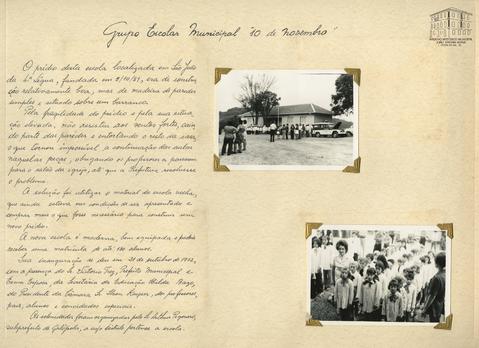 Grupo Escolar Municipal "10 de Novembro"
O prédio desta escola localizada em São João
da 4ª Légua, fundada em 8/10/87, era de constru-
ção relativamente boa, mas de madeira de paredes
simples e situado sobre um barranco.
Pela fragilidade do prédio e pela sua situa-
ção elevada, não resistiu aos ventos fortes, cain-
do parte das paredes e entortando o resto da casa,
o que tornou impossível a continuação das aulas
naquelas peças, obrigando os professores a passarem
para o salão da igreja, até que a Prefeitura resolvesse
o problema.
A solução foi utilizar o material da escola velha,
que ainda estava em condições de ser aproveitado e
comprar mais o que fosse necessário para construir um
novo prédio.
A nova escola é moderna, bem equipada e poderá
receber uma matrícula de até 120 alunos.
Sua inauguração se deu em 21 de outubro de 1972,
com a presença do Sr. Victorio Trez, Prefeito Municipal e
Exma Esposa, da Secretária da Educação
do Presidente da Câmara, Sr. dos professores,
pais, alunos e convidados especiais.
As solenidades foram organizadas pelo Sr.
subprefeito de Galópolis, a cujo distrito pertence a escola.